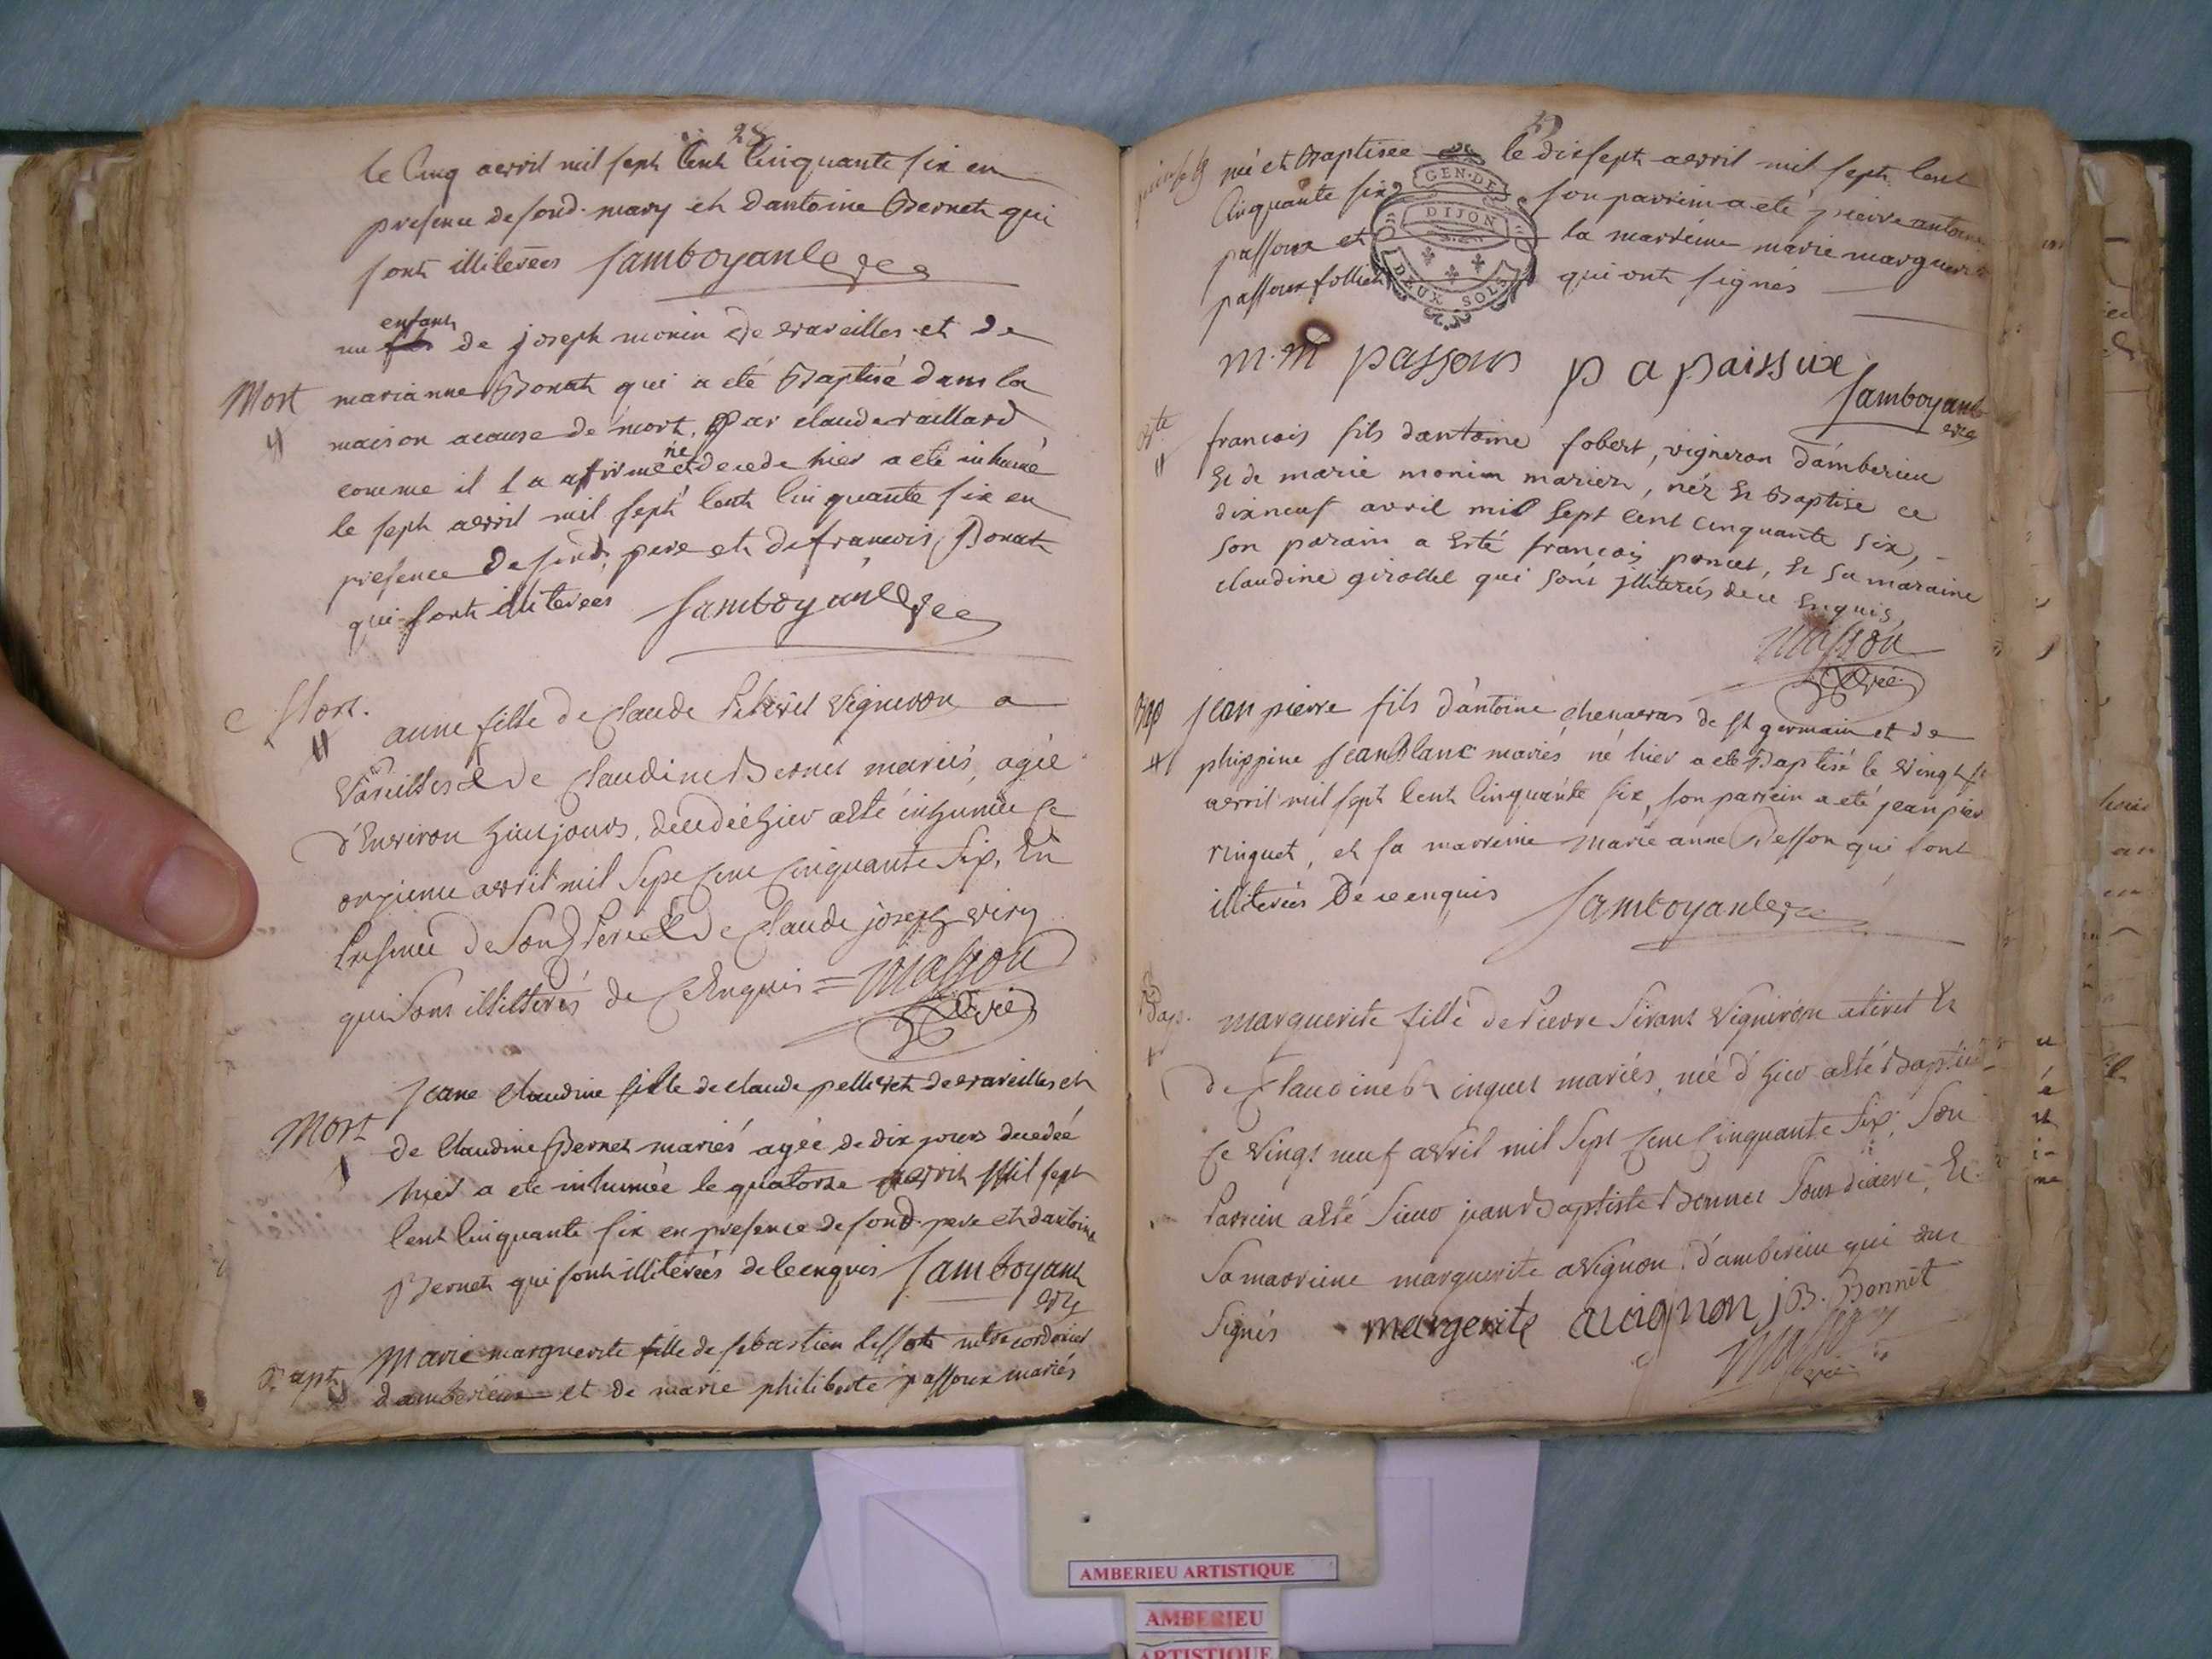 28
le Cinq avril mil sept Cent Cinquante six en
presence de sond. mary et dantoine Bernet qui
sont illiterees Jamboyant vre
enfant
un de joseph monin de vareilles et de
Mort marianne Bonat qui a eté Baptisé dans la
maison acause de mort. Par claude raillard
né
comme il la affirmé et decede hier a eté inhumé
le sept avril mil sept Cent Cinquante six en
presence de sond. pere et de francois Bonat
qui sont illiterees Jamboyant vre
Mort. anne fille de Claude Peleret Vigneron a
Vareilles & de Claudine Bernet mariés, agée
d'Environ huit jours, decedée hier a eté inhumée Ce
onzieme avril mil Sept Cent Cinquante Six, En
Presence de Sond Pere & de Claude joseph viry
qui Sont illitterés de Ce Enquis = Masson
Vic
Jeane Claudine fille de claude pelleret de vareilles et
Mort de Claudine Bernet mariés agée de dix jours decedée
hier a ete inhumée le quatorze avril Mil sept
Cent Cinquante six en presence de sond. pere et dantoine
Bernet qui sont illiterées de ce enquis Jamboyant
vre
Bapt Marie marguerite fille de sebastien mtre cordonier
damberieux et de marie philiberte passoux mariés
née et Baptisee le dixsept avril mil sept Cent
Cinquante six son parrin a eté pierre antoine
passoux et la marreine marie marguerite
passoux qui ont signés
GEN. DE
DIJON
DEUX SOLS
m. m passoux p a paissux
Jamboyant
vre
francois fils dantoine fobert, vigneron d'amberieu
Et de marie monim mariez, néz Et Baptise ce
dixneuf avril mil Sept Cent Cinquante Six,
Son parain a Esté francois poncet, Et Sa maraine
claudine girollet qui Sont jlliterés de ce Enquis
Masson
Vic
Bap jean pierre fils d'antoine chenavas de st germain et de
phippine jeanblanc mariés né hier a eté Baptisé le vingt
avril mil sept Cent Cinquante six, son parrein a eté jean pier
ringuet, et sa marreine Marie anne Besson qui sont
illiterées De ce enquis Jamboyant vre
Bap. Marguerite fille de Pierre Sirant Vigneron a tiret Et
de Claudine Ringuet mariés, née d'hier a eté Baptisée
Ce Vingt neuf avril mil Sept Cent Cinquante Six, Son
Parrein a eté Sieur jean Baptiste Bonnet Sous diacre, Et
Sa marreine marguerite avignon d'amberieu qui ont
Signés margerite avignon j B. Bonnet
Masson
Vic
AMBERIEU ARTISTIQUE
AMBERIEU
ARTISTIQUE